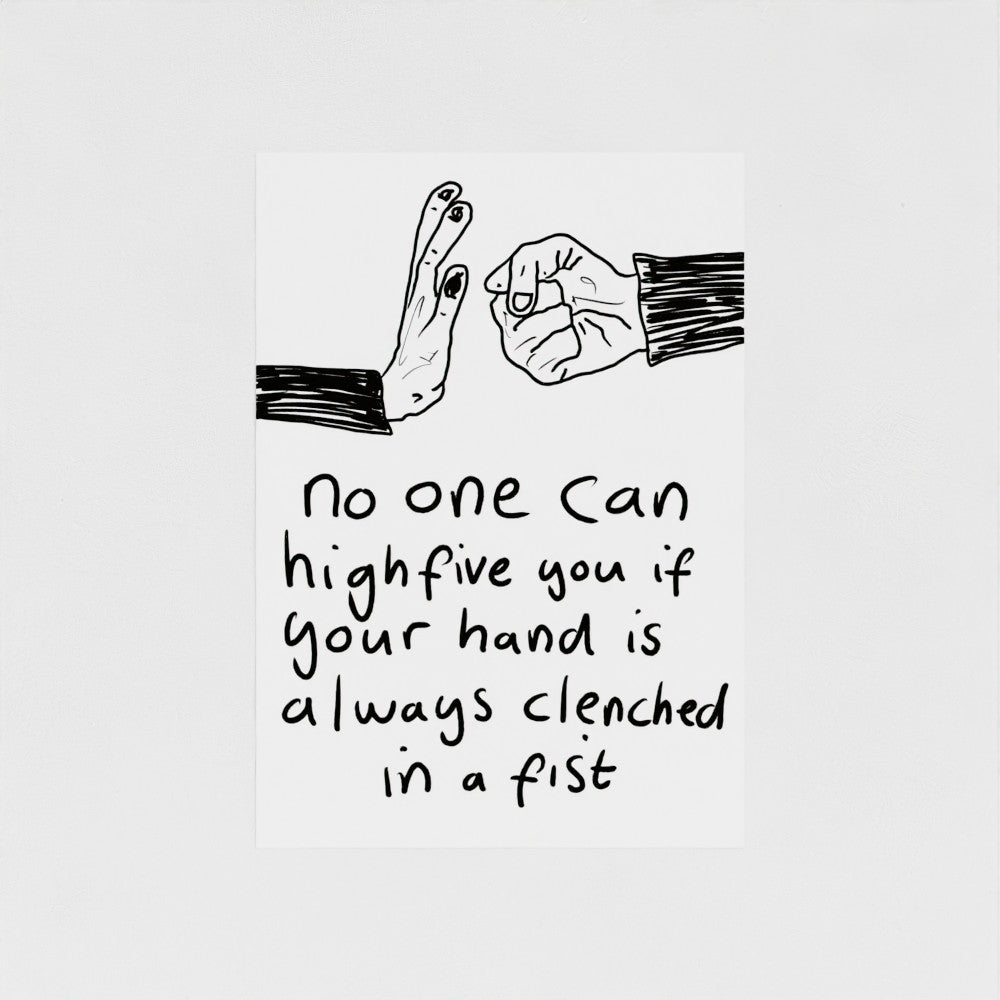 no one can
highfive you if
your hand is
always clenched
in a fist